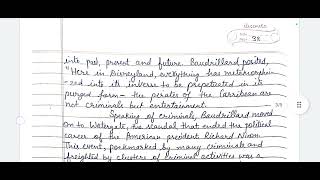 38
into past, present and future. Baudrillard posited,
"Here in Disneyland, everything has metamorphin-
-zed into its inverse to be perpetuated in its
purged form – the perates of the Carribean are
not criminals but entertainment.
Speaking of criminals, Baudrillard moved
on to Watergate, the scandal that ended the political
career of the American president Richard Nixon.
This event, pockmarked by many criminals and
freighted by clusters of criminal activities was a